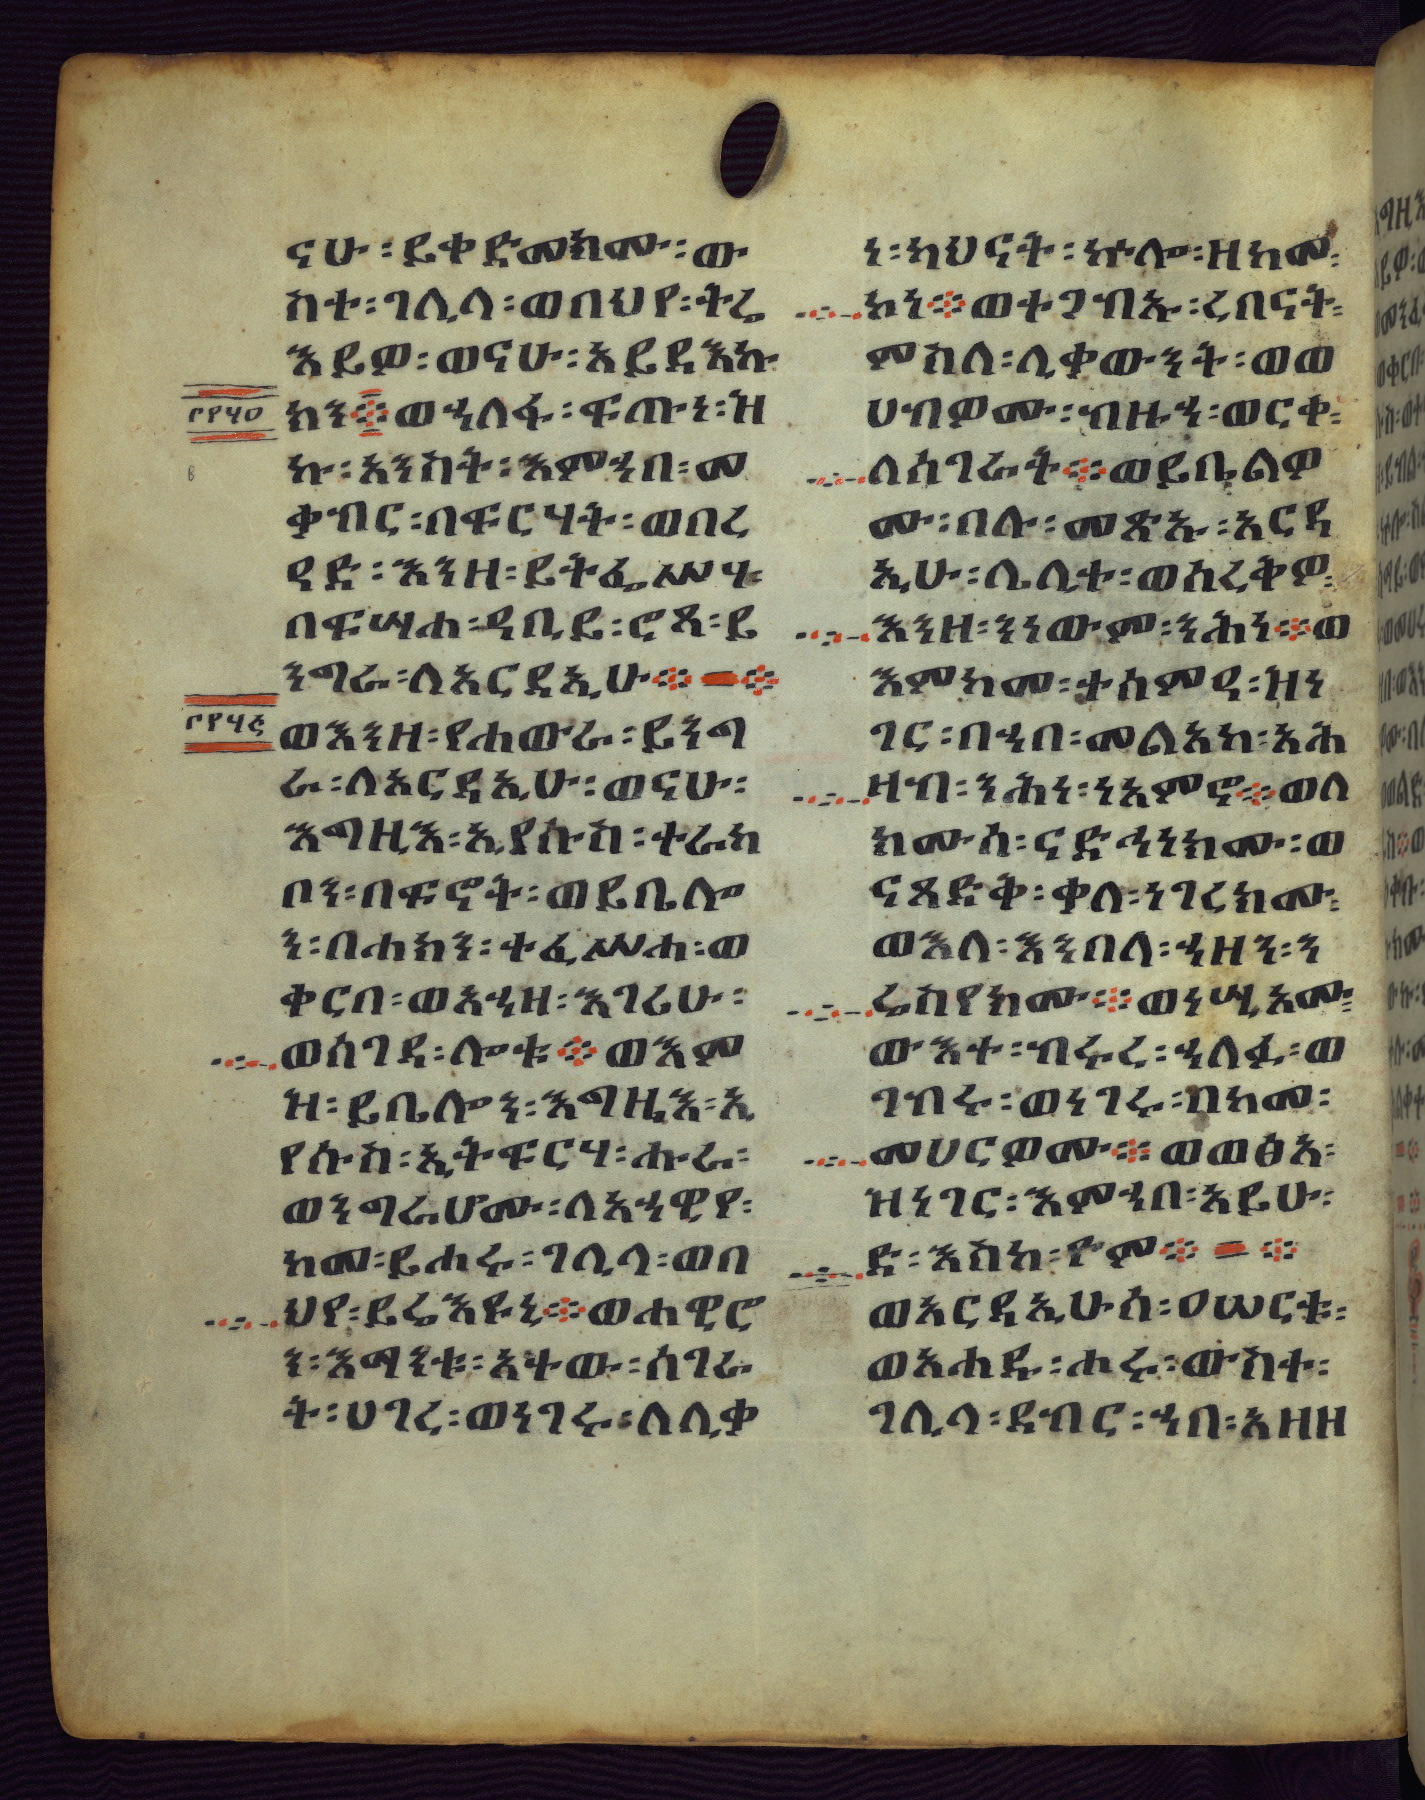 ናሁ ፡ ይቀድመክሙ ፡ ው
ስተ ፡ ገሊላ ፡ ወበህየ ፡ ትሬ
እይዎ ፡ ወናሁ ፡ አይዳእኩ
ክን ፨ ወኀለፋ ፡ ፍጡነ ፡ ዝ
ኩ ፡ አንስት ፡ እምኀበ ፡ መ
ቃብር ፡ በፍርሃት ፡ ወበረ
ዓድ ፡ እንዘ ፡ ይትፌሥሣ
በፍሣሐ ፡ ዓቢይ ፡ ሮጻ ፡ ይ
ንግራ ፡ ለአርዳኢሁ ፨ — ፨
ወእንዘ ፡ የሐውራ ፡ ይንግ
ራ ፡ ለአርዳኢሁ ፡ ወናሁ ፡
እግዚእ ፡ ኢየሱስ ፡ ተራክ
ቦን ፡ በፍኖት ፡ ወይቤሎ
ን ፡ በሐክን ፡ ተፈሥሐ ፡ ወ
ቀርበ ፡ ወአኀዘ ፡ እገሪሁ ፡
ወሰገዳ ፡ ሎቱ ፨ ወእም
ዝ ፡ ይቤሎን ፡ እግዚእ ፡ ኢ
የሱስ ፡ ኢትፍርሃ ፡ ሑራ ፡
ወንግራሆሙ ፡ ለአኀዊየ ፡
ከመ ፡ ይሐሩ ፡ ገሊላ ፡ ወበ
ህየ ፡ ይሬእዩኒ ፨ ወሐዊሮ
ን ፡ እማንቱ ፡ አተው ፡ ሰገራ
ት ፡ ሀገረ ፡ ወነገሩ ፡ ለሊቃ
ነ ፡ ካህናት ፡ ኵሎ ፡ ዘከመ ፡
ኮነ ፨ ወተጋብኡ ፡ ረበናት ፡
ምስለ ፡ ሊቃውንት ፡ ወወ
ሀብዎሙ ፡ ብዙኀ ፡ ወርቀ ፡
ለሰገራት ፨ ወይቤልዎ
ሙ ፡ በሉ ፡ መጽኡ ፡ አርዳ
ኢሁ ፡ ሌሊተ ፡ ወሰረቅዎ ፡
እንዘ ፡ ንነውም ፡ ንሕነ ፨ ወ
እምከመ ፡ ተሰምዓ ፡ ዝነ
ገር ፡ በኀበ ፡ መልአክ ፡ አሕ
ዛብ ፡ ንሕነ ፡ ነአምኖ ፨ ወለ
ክሙሰ ፡ ናድኅነክሙ ፡ ወ
ናጸድቅ ፡ ቃለ ፡ ነገረክሙ ፡
ወእለ ፡ እንበለ ፡ ኀዘን ፡ ን
ሬስየክሙ ፨ ወነሢኦሙ ፡
ውእተ ፡ ብሩረ ፡ ኀለፉ ፡ ወ
ገብሩ ፡ ወነገሩ ፡ በከመ ፡
መሀርዎሙ ፨ ወወፅአ ፡
ዝነገር ፡ እምኀበ ፡ አይሁ ፡
ድ ፡ እስከ ፡ ዮም ፨ — ፨
ወአርዳኢሁሰ ፡ ዐሠርቱ ፡
ወአሐዱ ፡ ሐሩ ፡ ውስተ ፡
ገሊላ ፡ ደብር ፡ ኀበ ፡ አዘዘ